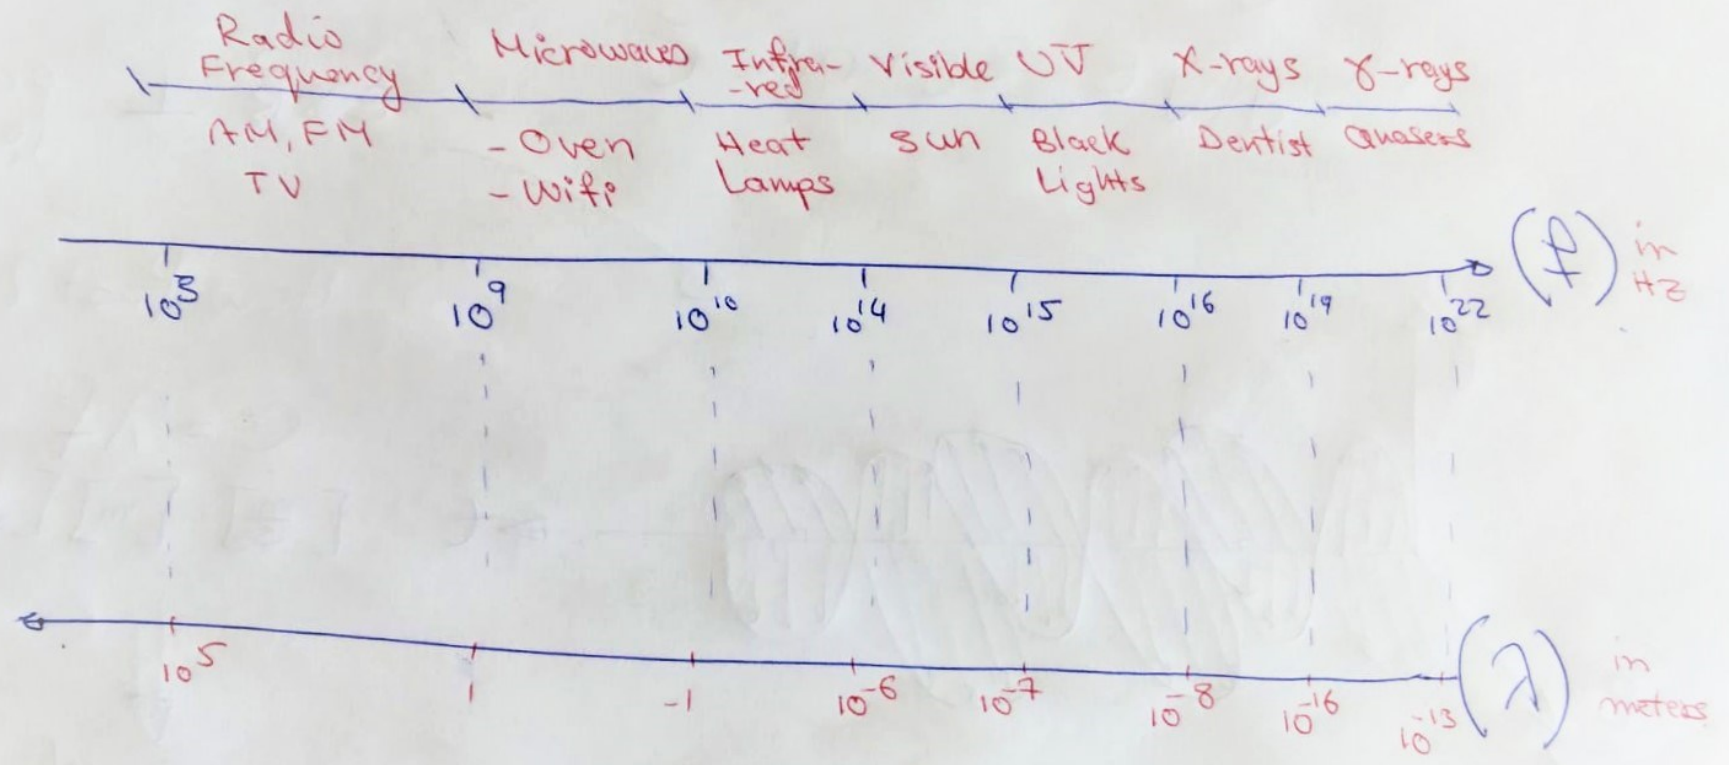 Radio
Frequency
Microwaves
Infra-
-red
Visible
UV
X-rays
γ-rays
AM, FM
TV
- Oven
- Wifi
Heat
Lamps
Sun
Black
Lights
Dentist
Quasers
10³
10⁹
10¹⁰
10¹⁴
10¹⁵
10¹⁶
10¹⁹
10²²
(f) in
Hz
10⁵
1
-1
10⁻⁶
10⁻⁷
10⁻⁸
10⁻¹⁶
10⁻¹³
(λ) in
meters